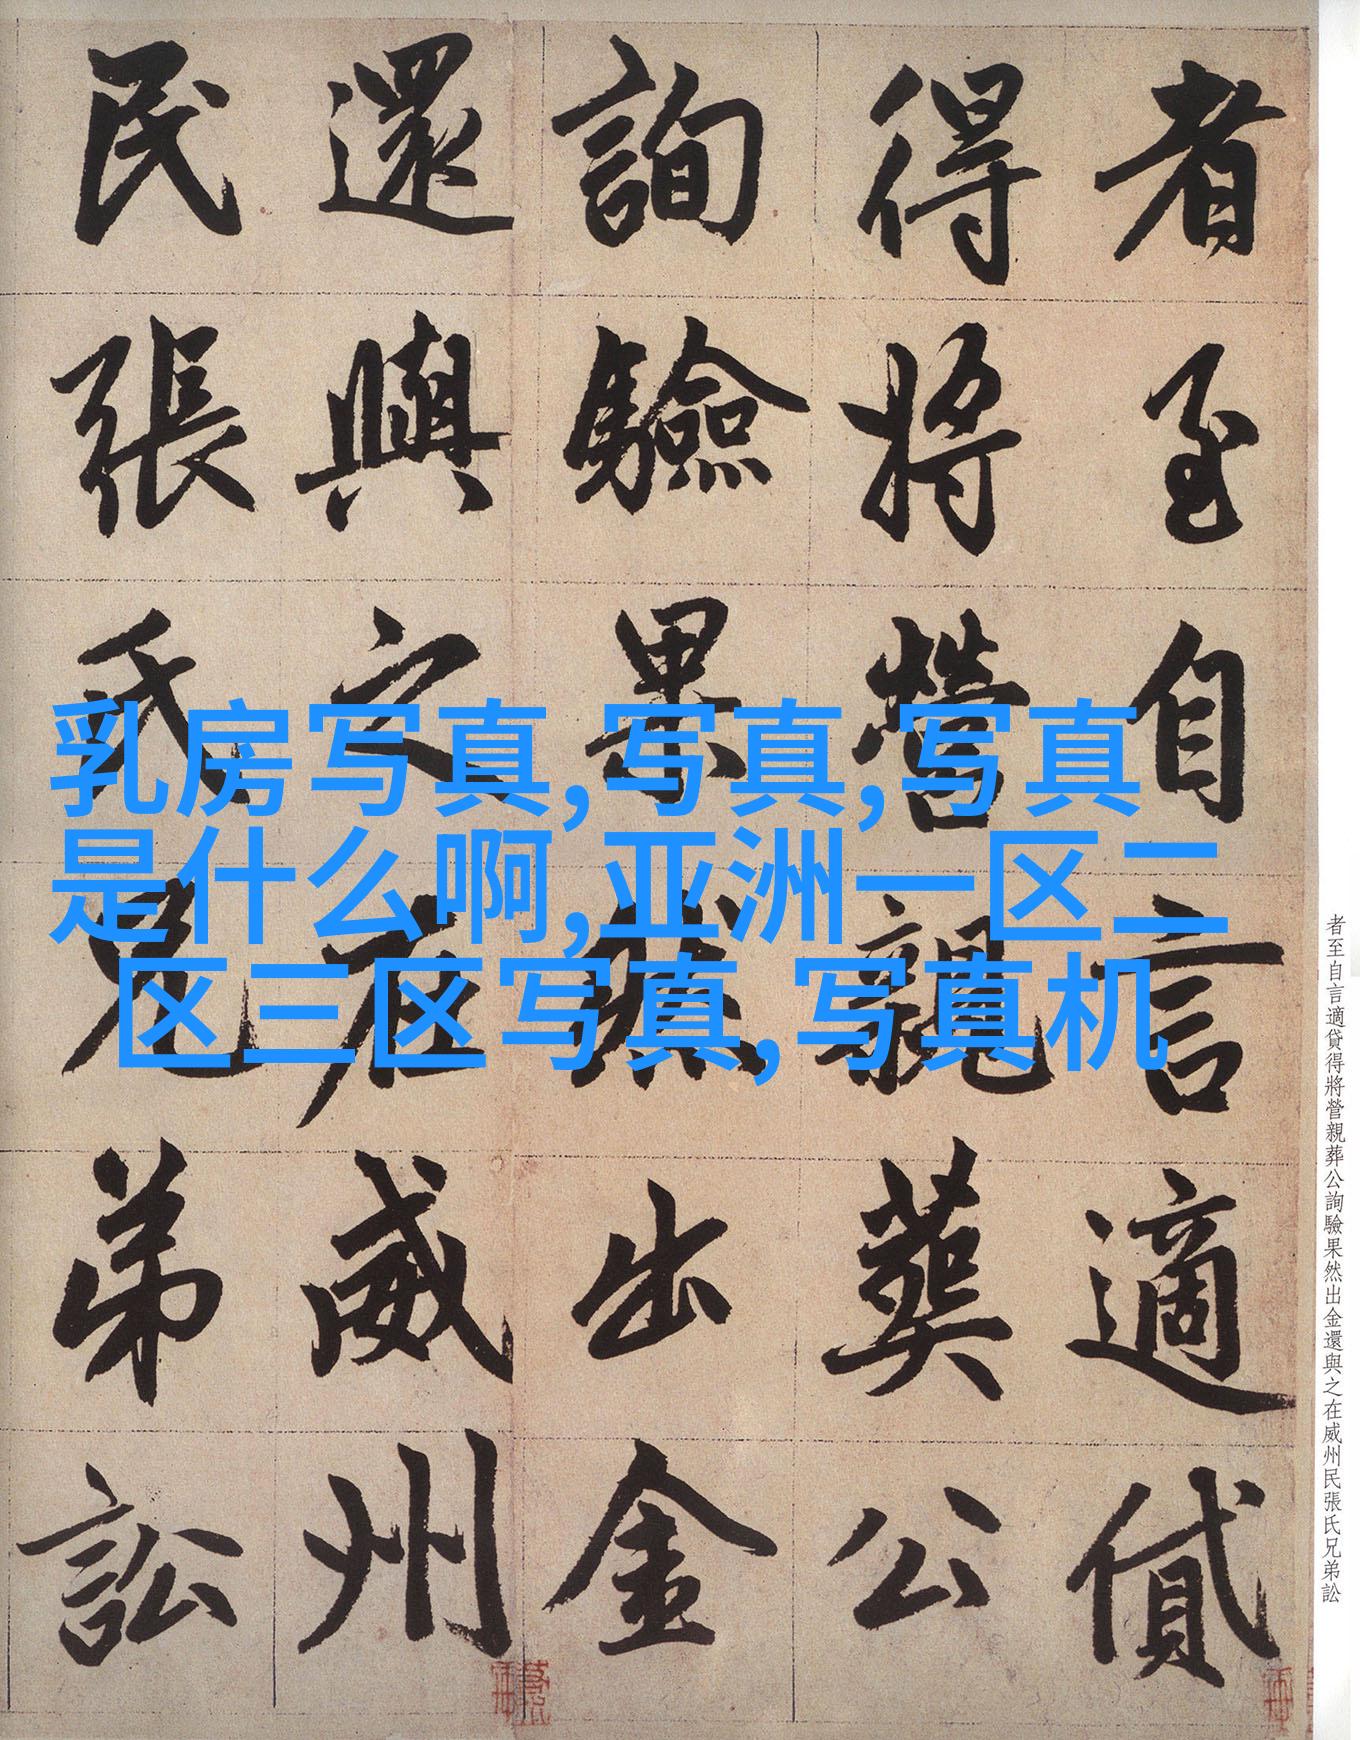 者至自言適貸
得將營親葬公
詢驗果然出金
還與之在威州
民張氏兄弟訟
乳房写真,写真,写真
是什么啊,亚洲一区二
区三区写真,写真机
者至自言適貸得將營親葬公詢驗果然出金還與之在威州民張氏兄弟訟